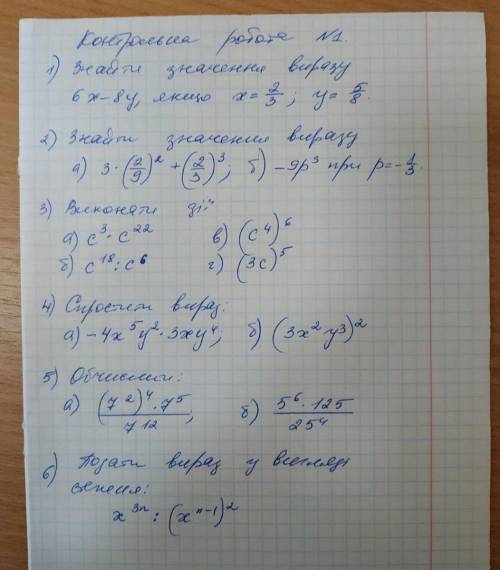 Контрольна робота №1.
1) Знайти значення виразу
6x-8y, якщо x=2/3; y=5/8.
2) Знайти значення виразу
а) 3·(2/9)² + (2/3)³; б) -9p³ при p=-1/3.
3) Виконати дії
а) c³·c²² в) (c⁴)⁶
б) c¹⁸:c⁶ г) (3c)⁵
4) Спростити вираз:
а) -4x⁵y²·3xy⁴; б) (3x²y³)²
5) Обчислити:
а) (7²)⁴·7⁵/7¹²; б) 5⁶·125/25⁴
6) Подати вираз у вигляді
степеня:
x³ⁿ : (xⁿ⁻¹)²